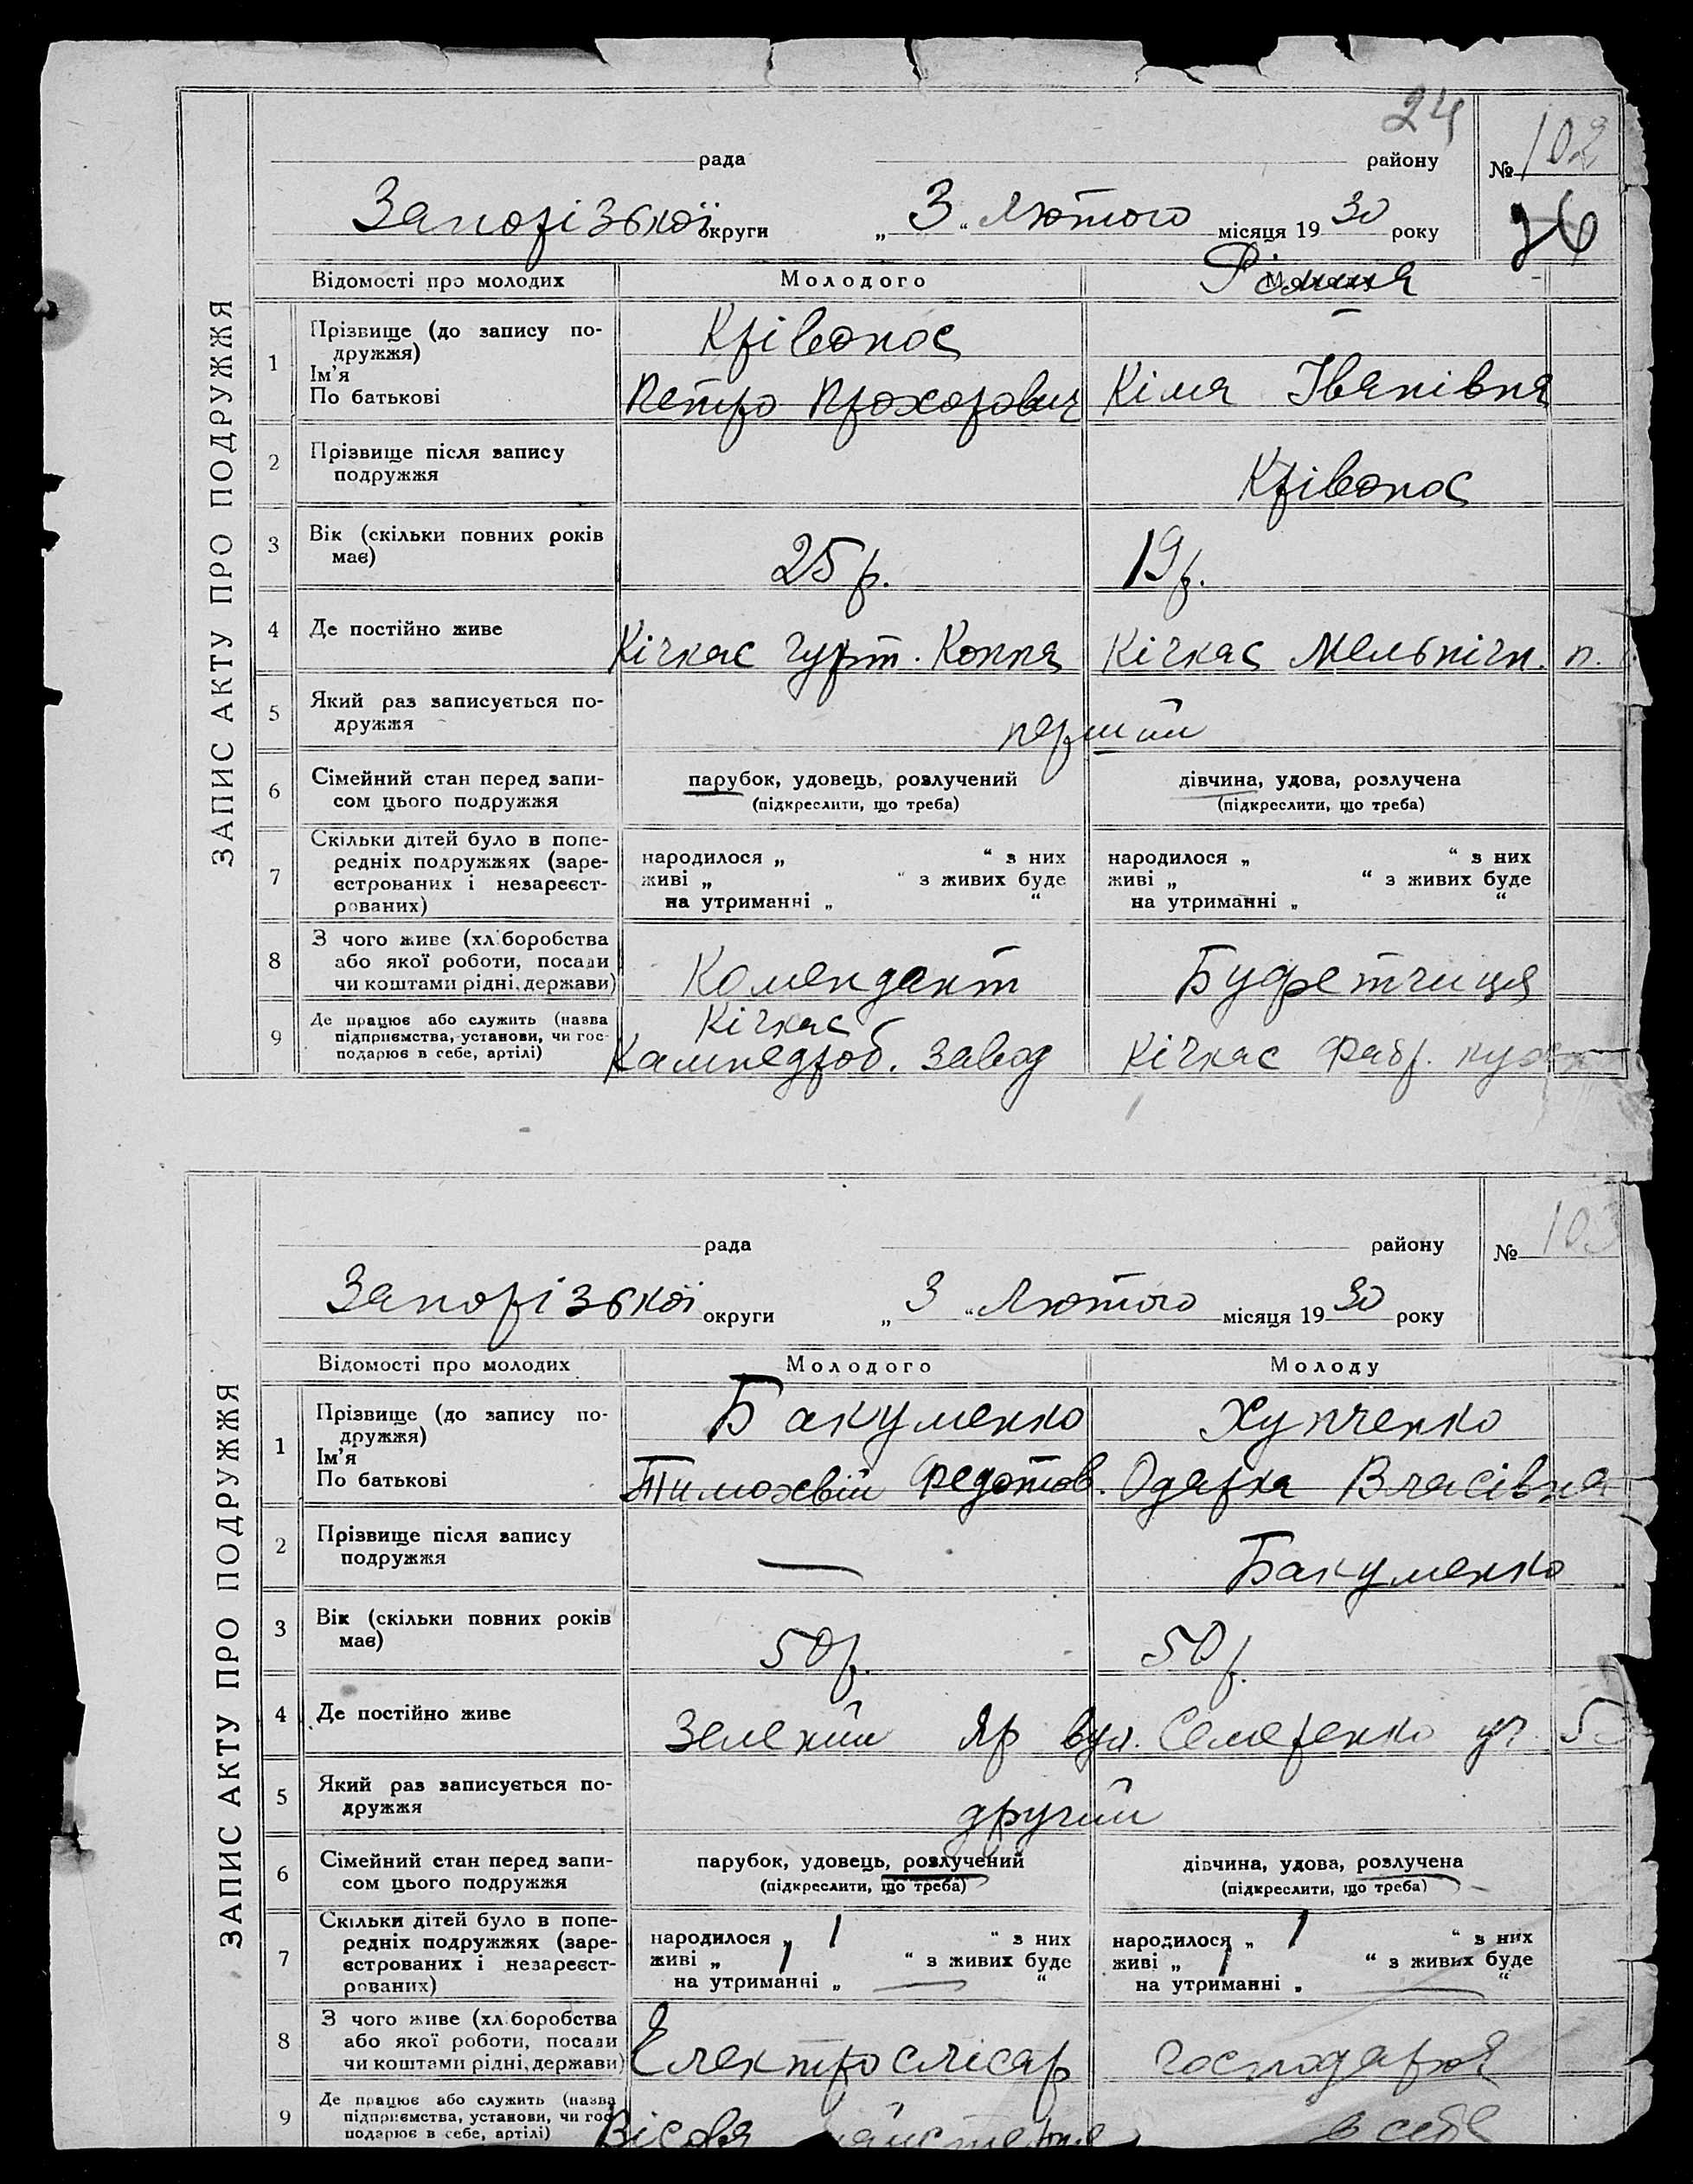 24
рада району № 102
Запорізької округи „ 3 “ Лютого місяця 19 30 року 76
ЗАПИС АКТУ ПРО ПОДРУЖЖЯ
Відомості про молодих Молодого
1 Прізвище (до запису по-
дружжя)
Ім'я
По батькові
Крівонос
Петро Прохорович Кіля Іванівна
2 Прізвище після запису
подружжя
Крівонос
3 Вік (скільки повних років
має)
25 р. 19 р.
4 Де постійно живе
Кічкас гурт. Копня Кічкас Мельнічн. п.
5 Який раз записується по-
дружжя
перший
6 Сімейний стан перед запи-
сом цього подружжя
парубок, удовець, розлучений дівчина, удова, розлучена
(підкреслити, що треба) (підкреслити, що треба)
7 Скільки дітей було в попе-
редніх подружжях (заре-
єстрованих і незареєст-
рованих)
народилося „ “ з них народилося „ “ з них
живі „ “ з живих буде живі „ “ з живих буде
на утриманні „ “ на утриманні „ “
8 З чого живе (хліборобства
або якої роботи, посади
чи коштами рідні, держави)
Комендант Буфетчиця
9 Де працює або служить (назва
підприємства, установи, чи гос-
подарює в себе, артілі)
Кічкас
Камнедроб. завод Кічкас Фабр. кух
рада району № 103
Запорізької округи „ 3 “ Лютого місяця 19 30 року
ЗАПИС АКТУ ПРО ПОДРУЖЖЯ
Відомості про молодих Молодого Молоду
1 Прізвище (до запису по-
дружжя)
Ім'я
По батькові
Бакуменко Хупченко
Тимохвій Федотов. Одарка Власівна
2 Прізвище після запису
подружжя
— Бакуменко
3 Вік (скільки повних років
має)
50 р. 50 р.
4 Де постійно живе
Зелений Яр вул. Семеренко
5 Який раз записується по-
дружжя
другий
6 Сімейний стан перед запи-
сом цього подружжя
парубок, удовець, розлучений дівчина, удова, розлучена
(підкреслити, що треба) (підкреслити, що треба)
7 Скільки дітей було в попе-
редніх подружжях (заре-
єстрованих і незареєст-
рованих)
народилося „ 1 “ з них народилося „ 1 “ з них
живі „ 1 “ з живих буде живі „ 1 “ з живих буде
на утриманні „ — “ на утриманні „ — “
8 З чого живе (хліборобства
або якої роботи, посади
чи коштами рідні, держави)
Електрослісар господарює
9 Де працює або служить (назва
підприємства, установи, чи гос-
подарює в себе, артілі)
Вісова майстерня в себе